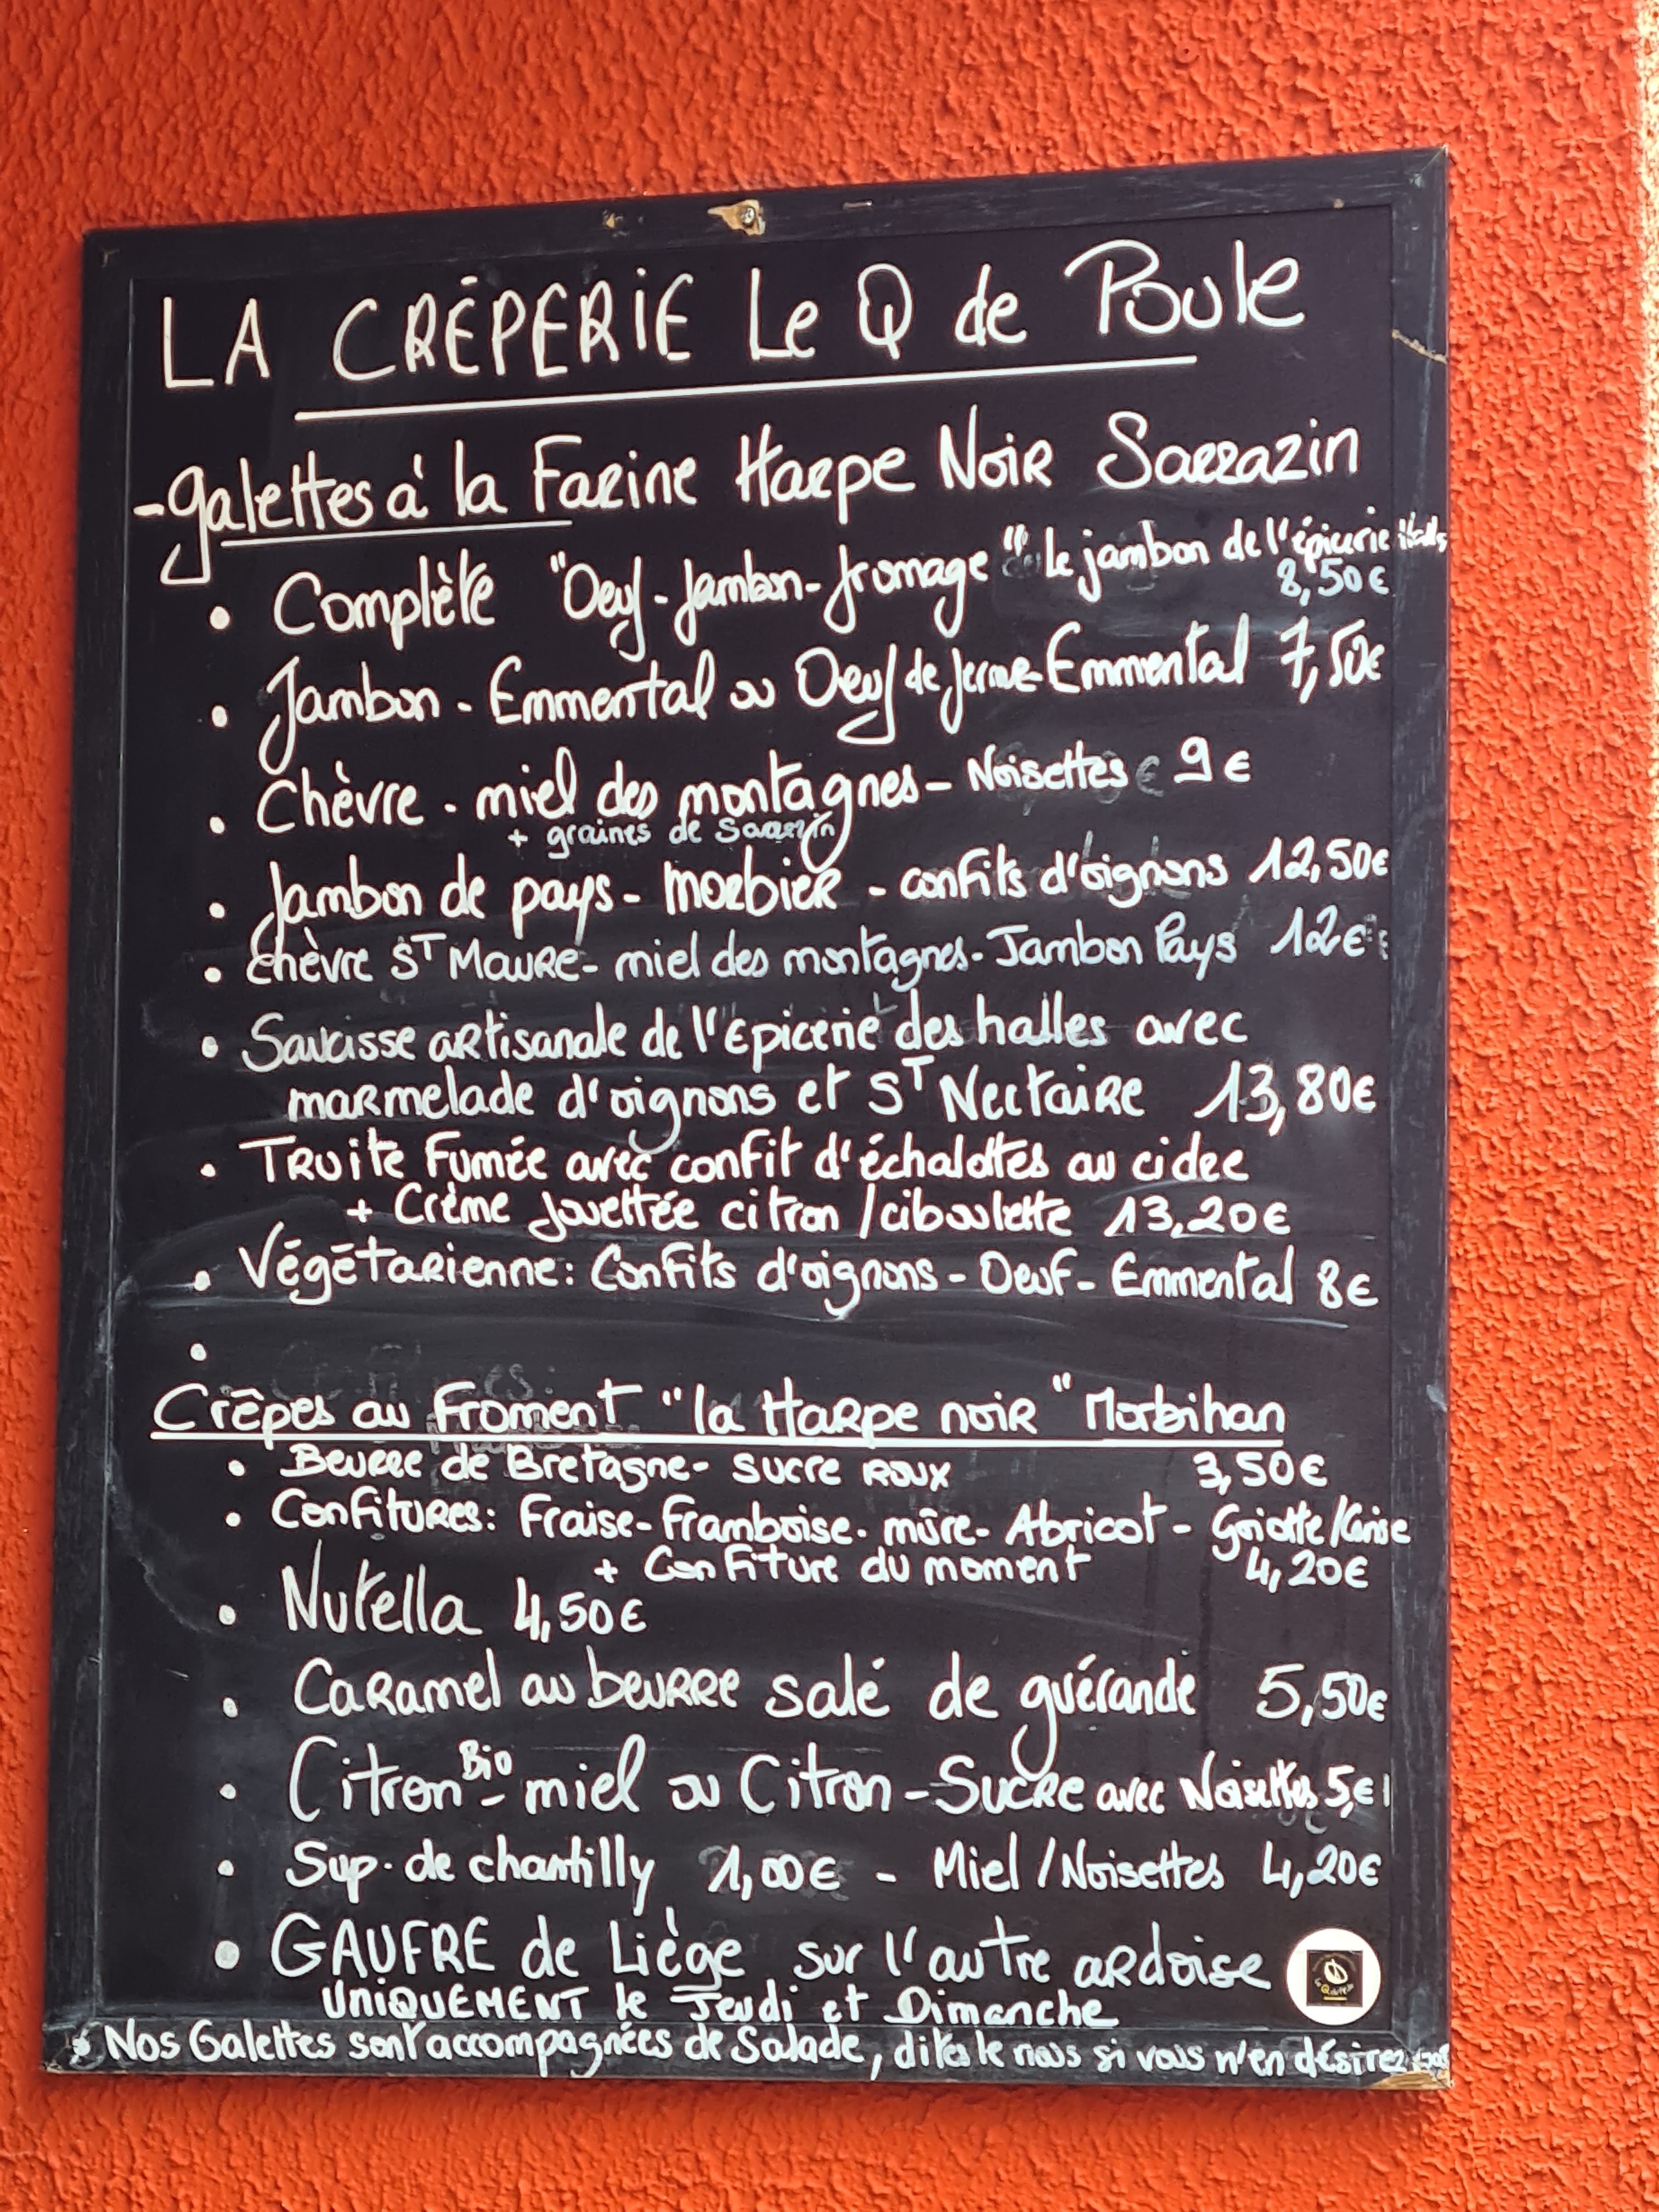 LA CRÊPERIE Le Q de Poule
- galettes à la Farine Harpe Noir Sarrazin
• Complète "Oeuf - Jambon - fromage" le jambon de l'épicerie
8,50€
• Jambon - Emmental ou Oeuf de ferme - Emmental 7,50€
• Chèvre - miel des montagnes - Noisettes 9€
+ graines de Sarrazin
• Jambon de pays - morbier - confits d'oignons 12,50€
• Chèvre ST MAURE - miel des montagnes - Jambon Pays 12€
• Saucisse artisanale de l'Epicerie des halles avec
marmelade d'oignons et ST Nectaire 13,80€
• Truite Fumée avec confit d'échalottes au cidre
+ Crème fouettée citron / ciboulette 13,20€
• Végétarienne : Confits d'oignons - Oeuf - Emmental 8€
•
Crêpes au Froment "la Harpe noir" Morbihan
• Beurre de Bretagne - sucre roux 3,50€
• Confitures : Fraise - Framboise - mûre - Abricot - Griotte/Cerise
+ Confiture du moment 4,20€
• Nutella 4,50€
• Caramel au beurre salé de guérande 5,50€
• Citron Bio - miel ou Citron - Sucre avec Noisettes 5€
• Sup. de chantilly 1,00€ - Miel / Noisettes 4,20€
• GAUFRE de Liège sur l'autre ardoise
UNIQUEMENT le Jeudi et Dimanche
* Nos Galettes sont accompagnées de Salade, dites le nous si vous n'en désirez pas